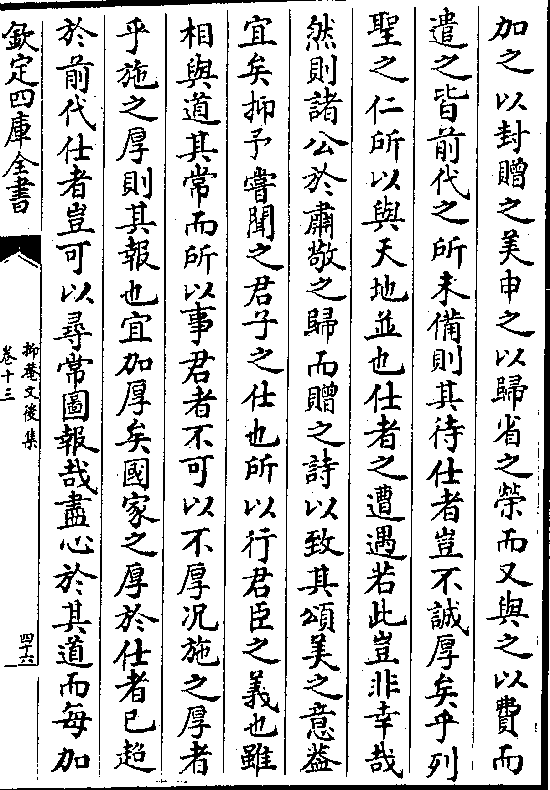 加之以封贈之美申之以歸省之榮而又與之以費而
遣之皆前代之所未備則其待仕者豈不誠厚矣乎列
聖之仁所以與天地並也仕者之遭遇若此豈非幸哉
然則諸公於肅敬之歸而贈之詩以致其頌美之意葢
宜矣抑予嘗聞之君子之仕也所以行君臣之義也雖
相與道其常而所以事君者不可以不厚况施之厚者
乎施之厚則其報也宜加厚矣國家之厚於仕者已超
於前代仕者豈可以尋常圖報哉盡心於其道而每加
欽定四庫全書
抑菴文後集
卷十三
四十六